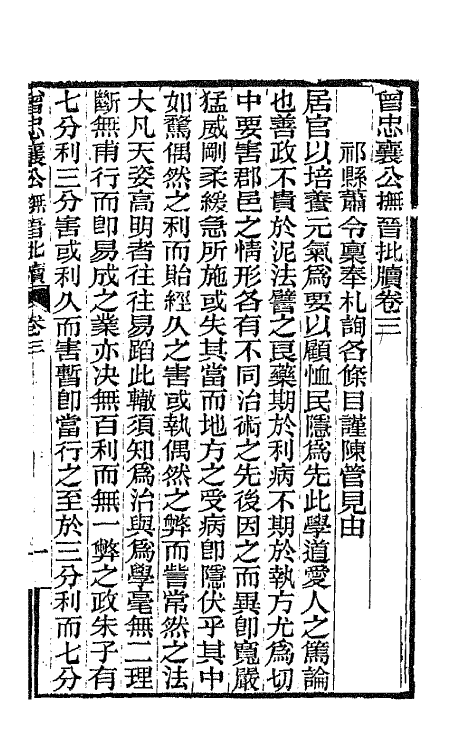 曾忠襄公撫晉批牘卷三
祁縣蕭令稟奉札詢各條目謹陳管見由
居官以培養元氣爲要以顧恤民隱爲先此學道愛人之篤論
也善政不貴於泥法譬之良藥期於利病不期於執方尤爲切
中要害郡邑之情形各有不同治術之先後因之而異卽寬嚴
猛威剛柔緩急所施或失其當而地方之受病卽隱伏乎其中
如驚偶然之利而貽經久之害或執偶然之弊而訾常然之法
大凡天姿高明者往往易蹈此轍須知爲治與爲學毫無二理
斷無甫行而卽易成之業亦決無百利而無一弊之政朱子有
七分利三分害或利久而害暫卽當行之至於三分利而七分
曾忠襄公撫晉批牘
卷三
一